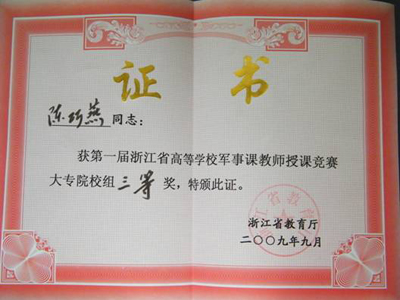 证书
陈巧燕同志:
获第一届浙江省高等学校军事课教师授课竞赛
大专院校组三等奖,特颁此证。
浙江省教育厅
二〇〇九年九月